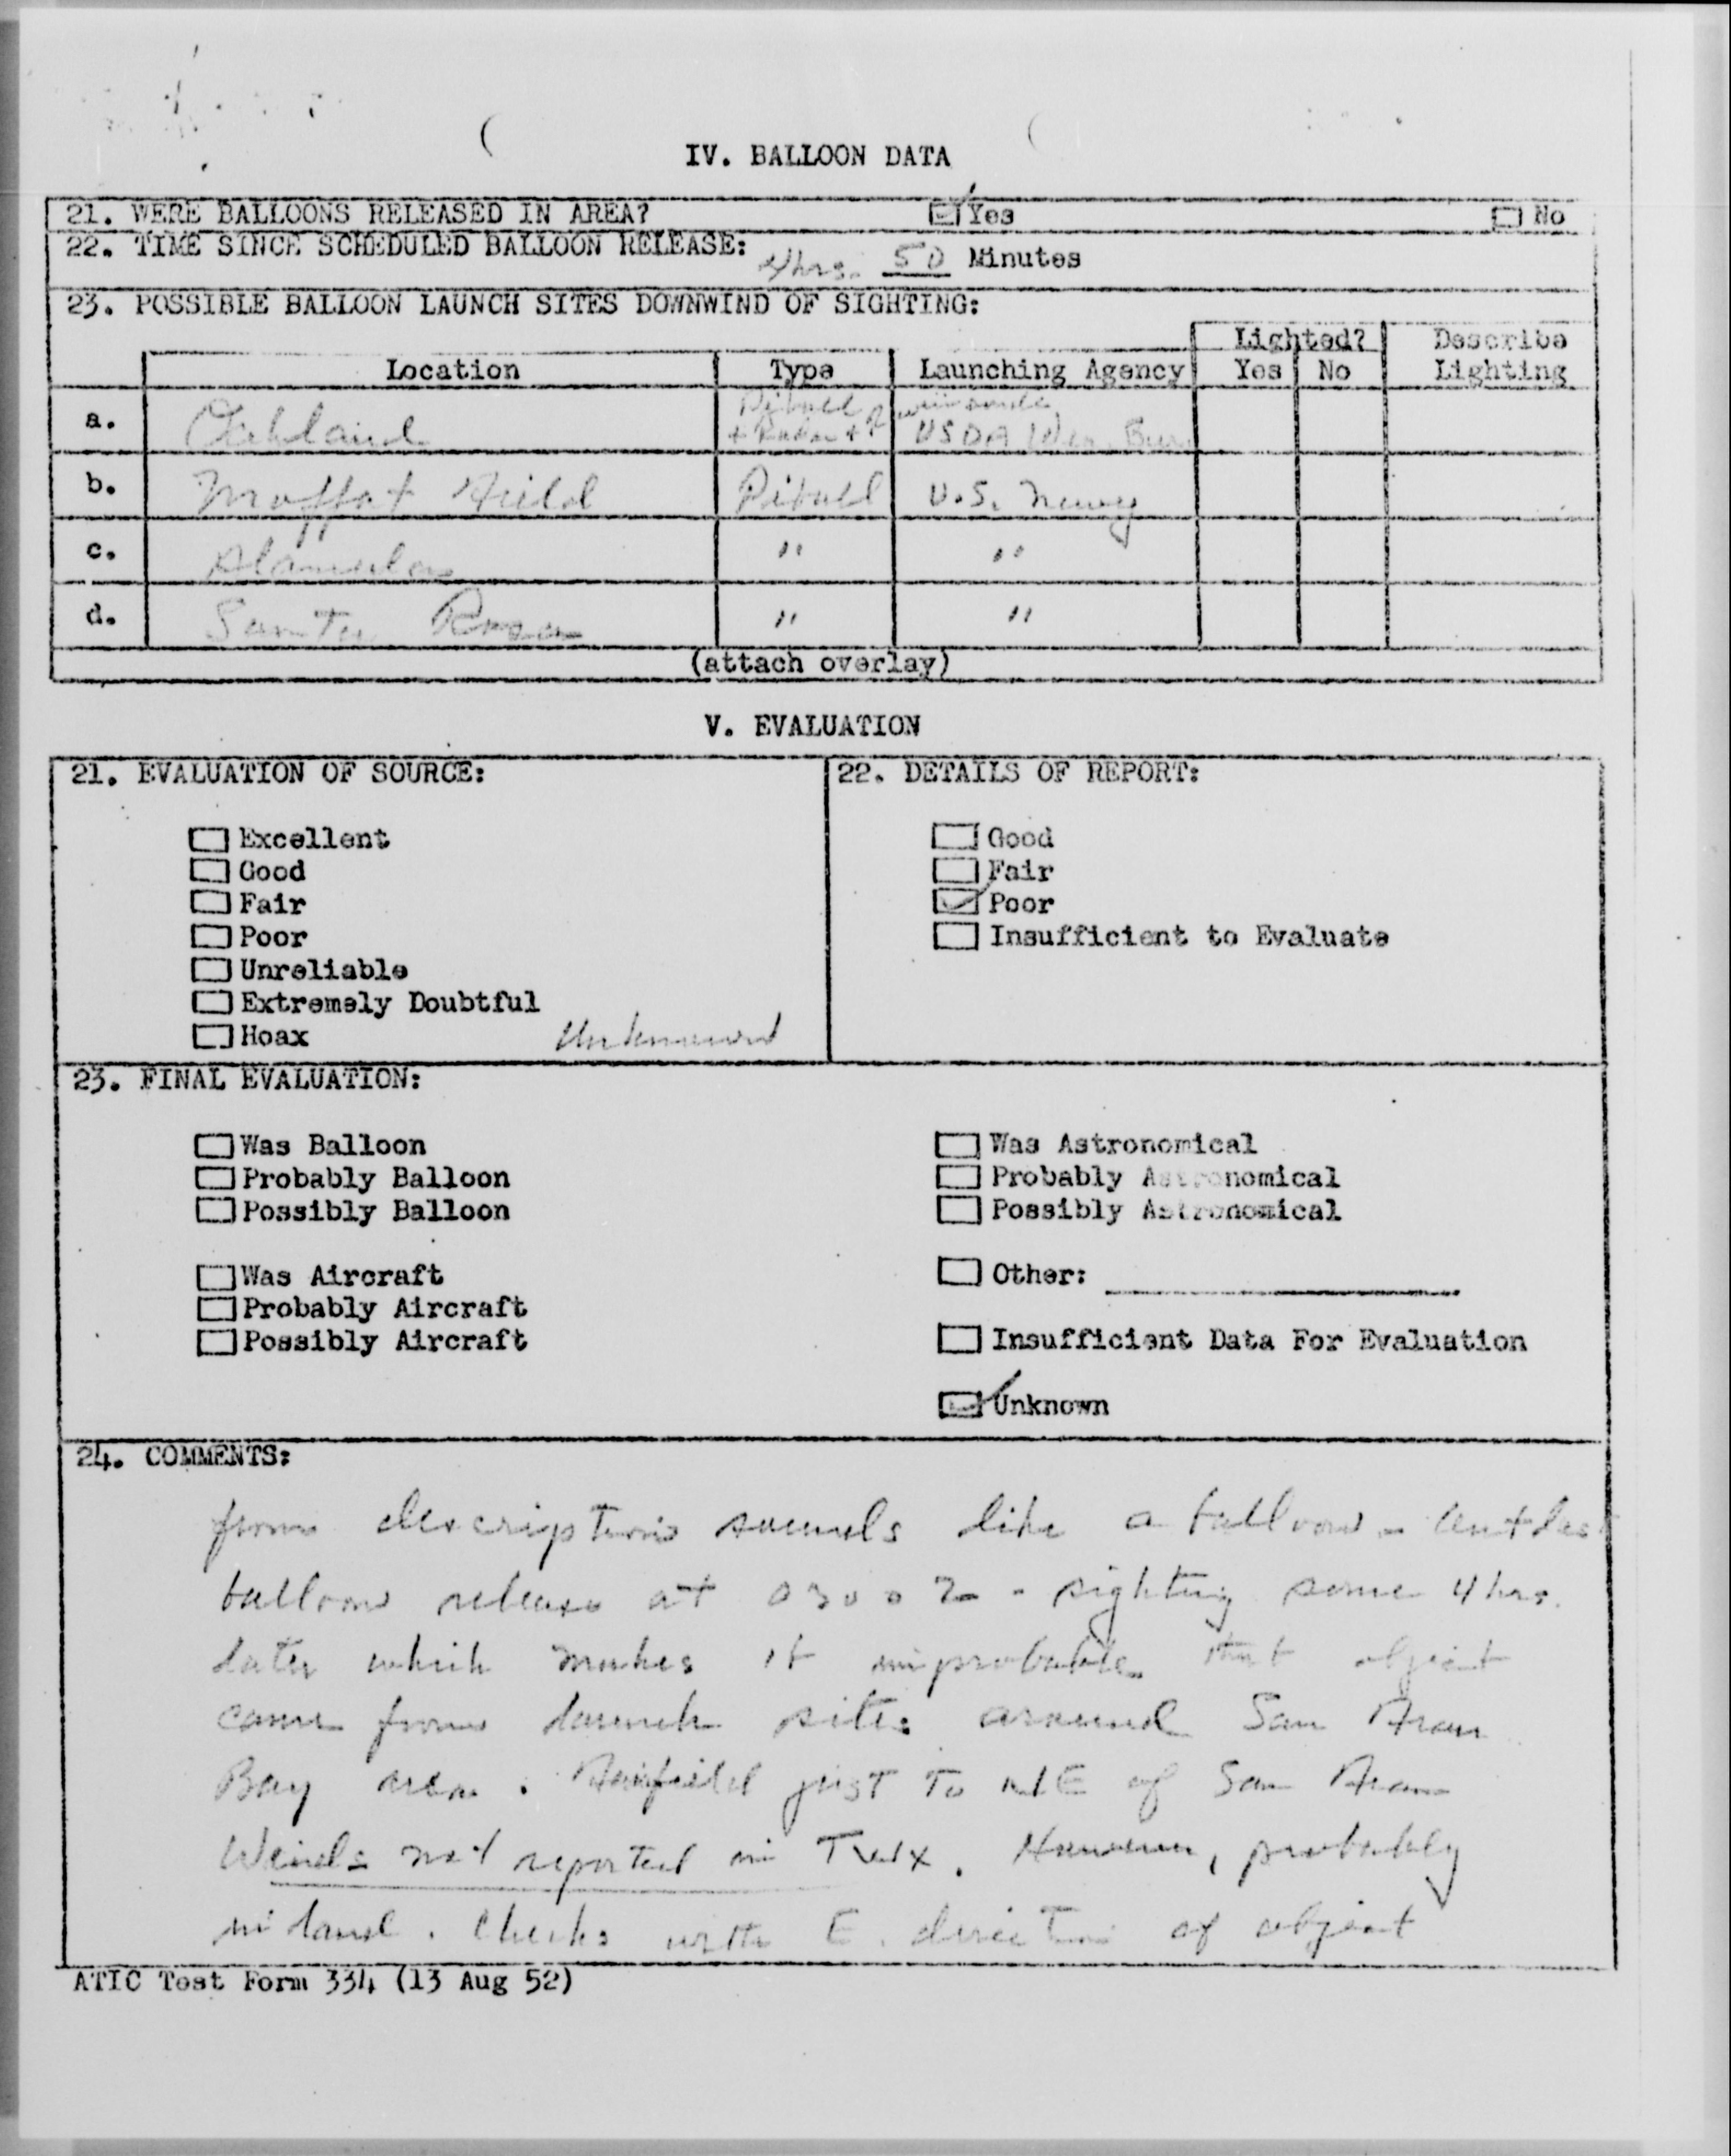 IV. BALLOON DATA
21. WERE BALLOONS RELEASED IN AREA? Yes No
22. TIME SINCE SCHEDULED BALLOON RELEASE: 4 hrs. 50 Minutes
23. POSSIBLE BALLOON LAUNCH SITES DOWNWIND OF SIGHTING:
Lighted? Describe
Location Type Launching Agency Yes No Lighting
a. Oakland Piball + Radar + USDA Wea. Bur
b. Moffat Field Piball U.S. Navy
c. Alameda " "
d. Santa Rosa " "
(attach overlay)
V. EVALUATION
21. EVALUATION OF SOURCE:
Excellent
Good
Fair
Poor
Unreliable
Extremely Doubtful
Hoax Unknown
22. DETAILS OF REPORT:
Good
Fair
Poor
Insufficient to Evaluate
23. FINAL EVALUATION:
Was Balloon
Probably Balloon
Possibly Balloon
Was Aircraft
Probably Aircraft
Possibly Aircraft
Was Astronomical
Probably Astronomical
Possibly Astronomical
Other:
Insufficient Data For Evaluation
Unknown
24. COMMENTS:
from description sounds like a balloon -
balloon release at 0300Z - sighting some 4 hrs.
later which makes it improbable that object
came from launch sites around San Fran
Bay area. Fairfield just to NE of San Fran
Winds not reported in Twx. However, probably
inland. Checks with E. direction of object
ATIC Test Form 334 (13 Aug 52)